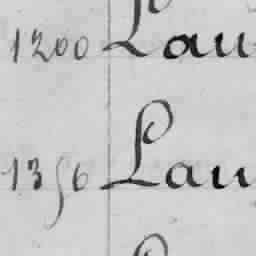 1200 Lau
1356 Lau